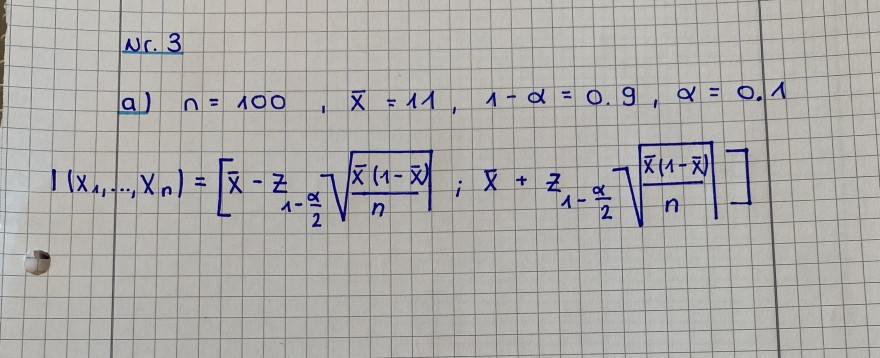 Nr. 3
a) n = 100 , x̄ = 11 , 1 - α = 0.9 , α = 0.1
I (x₁,...,xₙ) = [x̄ - z_{1-α/2} √(x̄(1-x̄)/n) ; x̄ + z_{1-α/2} √(x̄(1-x̄)/n)]